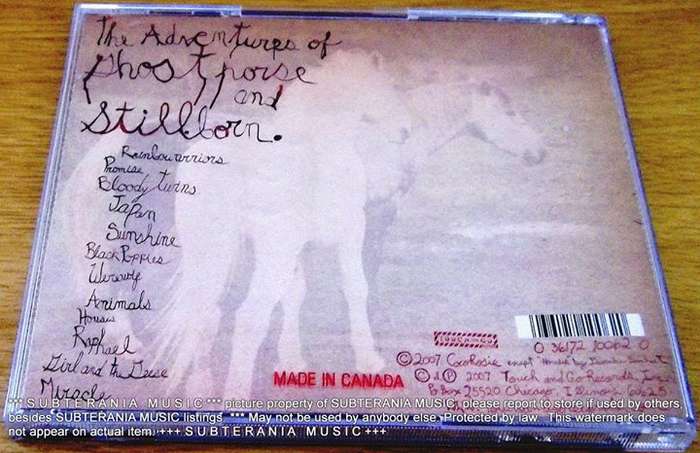 The Adventures of
Ghosthorse
and
Stillborn.
Rainbowarriors
Promise
Bloody Twins
Japan
Sunshine
Black Poppies
Werewolf
Animals
Houses
Raphael
Girl and the Geese
Miracle
TOUCH AND GO
0 36172 10012 0
©2007 CocoRosie except
©&℗ 2007 Touch and Go Records, Inc.
P.O. Box 25520 Chicago
MADE IN CANADA
*** S U B T E R A N I A M U S I C *** picture property of SUBTERANIA MUSIC, please report to store if used by others
besides SUBTERANIA MUSIC listings *** May not be used by anybody else. Protected by law. This watermark does
not appear on actual item. +++ S U B T E R A N I A M U S I C +++